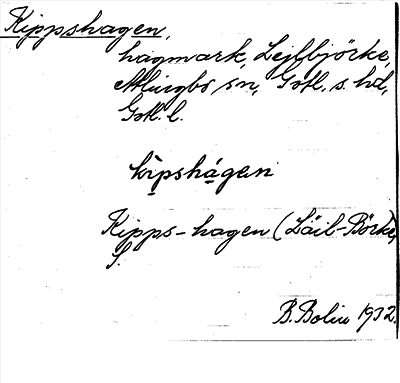 Kippshagen,
hagmark, Lejlbjörke,
Alingbo sn, Gotl. s. hd,
Gotl. l.
kìpshágen
Kipps-hagen (Läil-Börke)
S.
B. Bolin 1932.